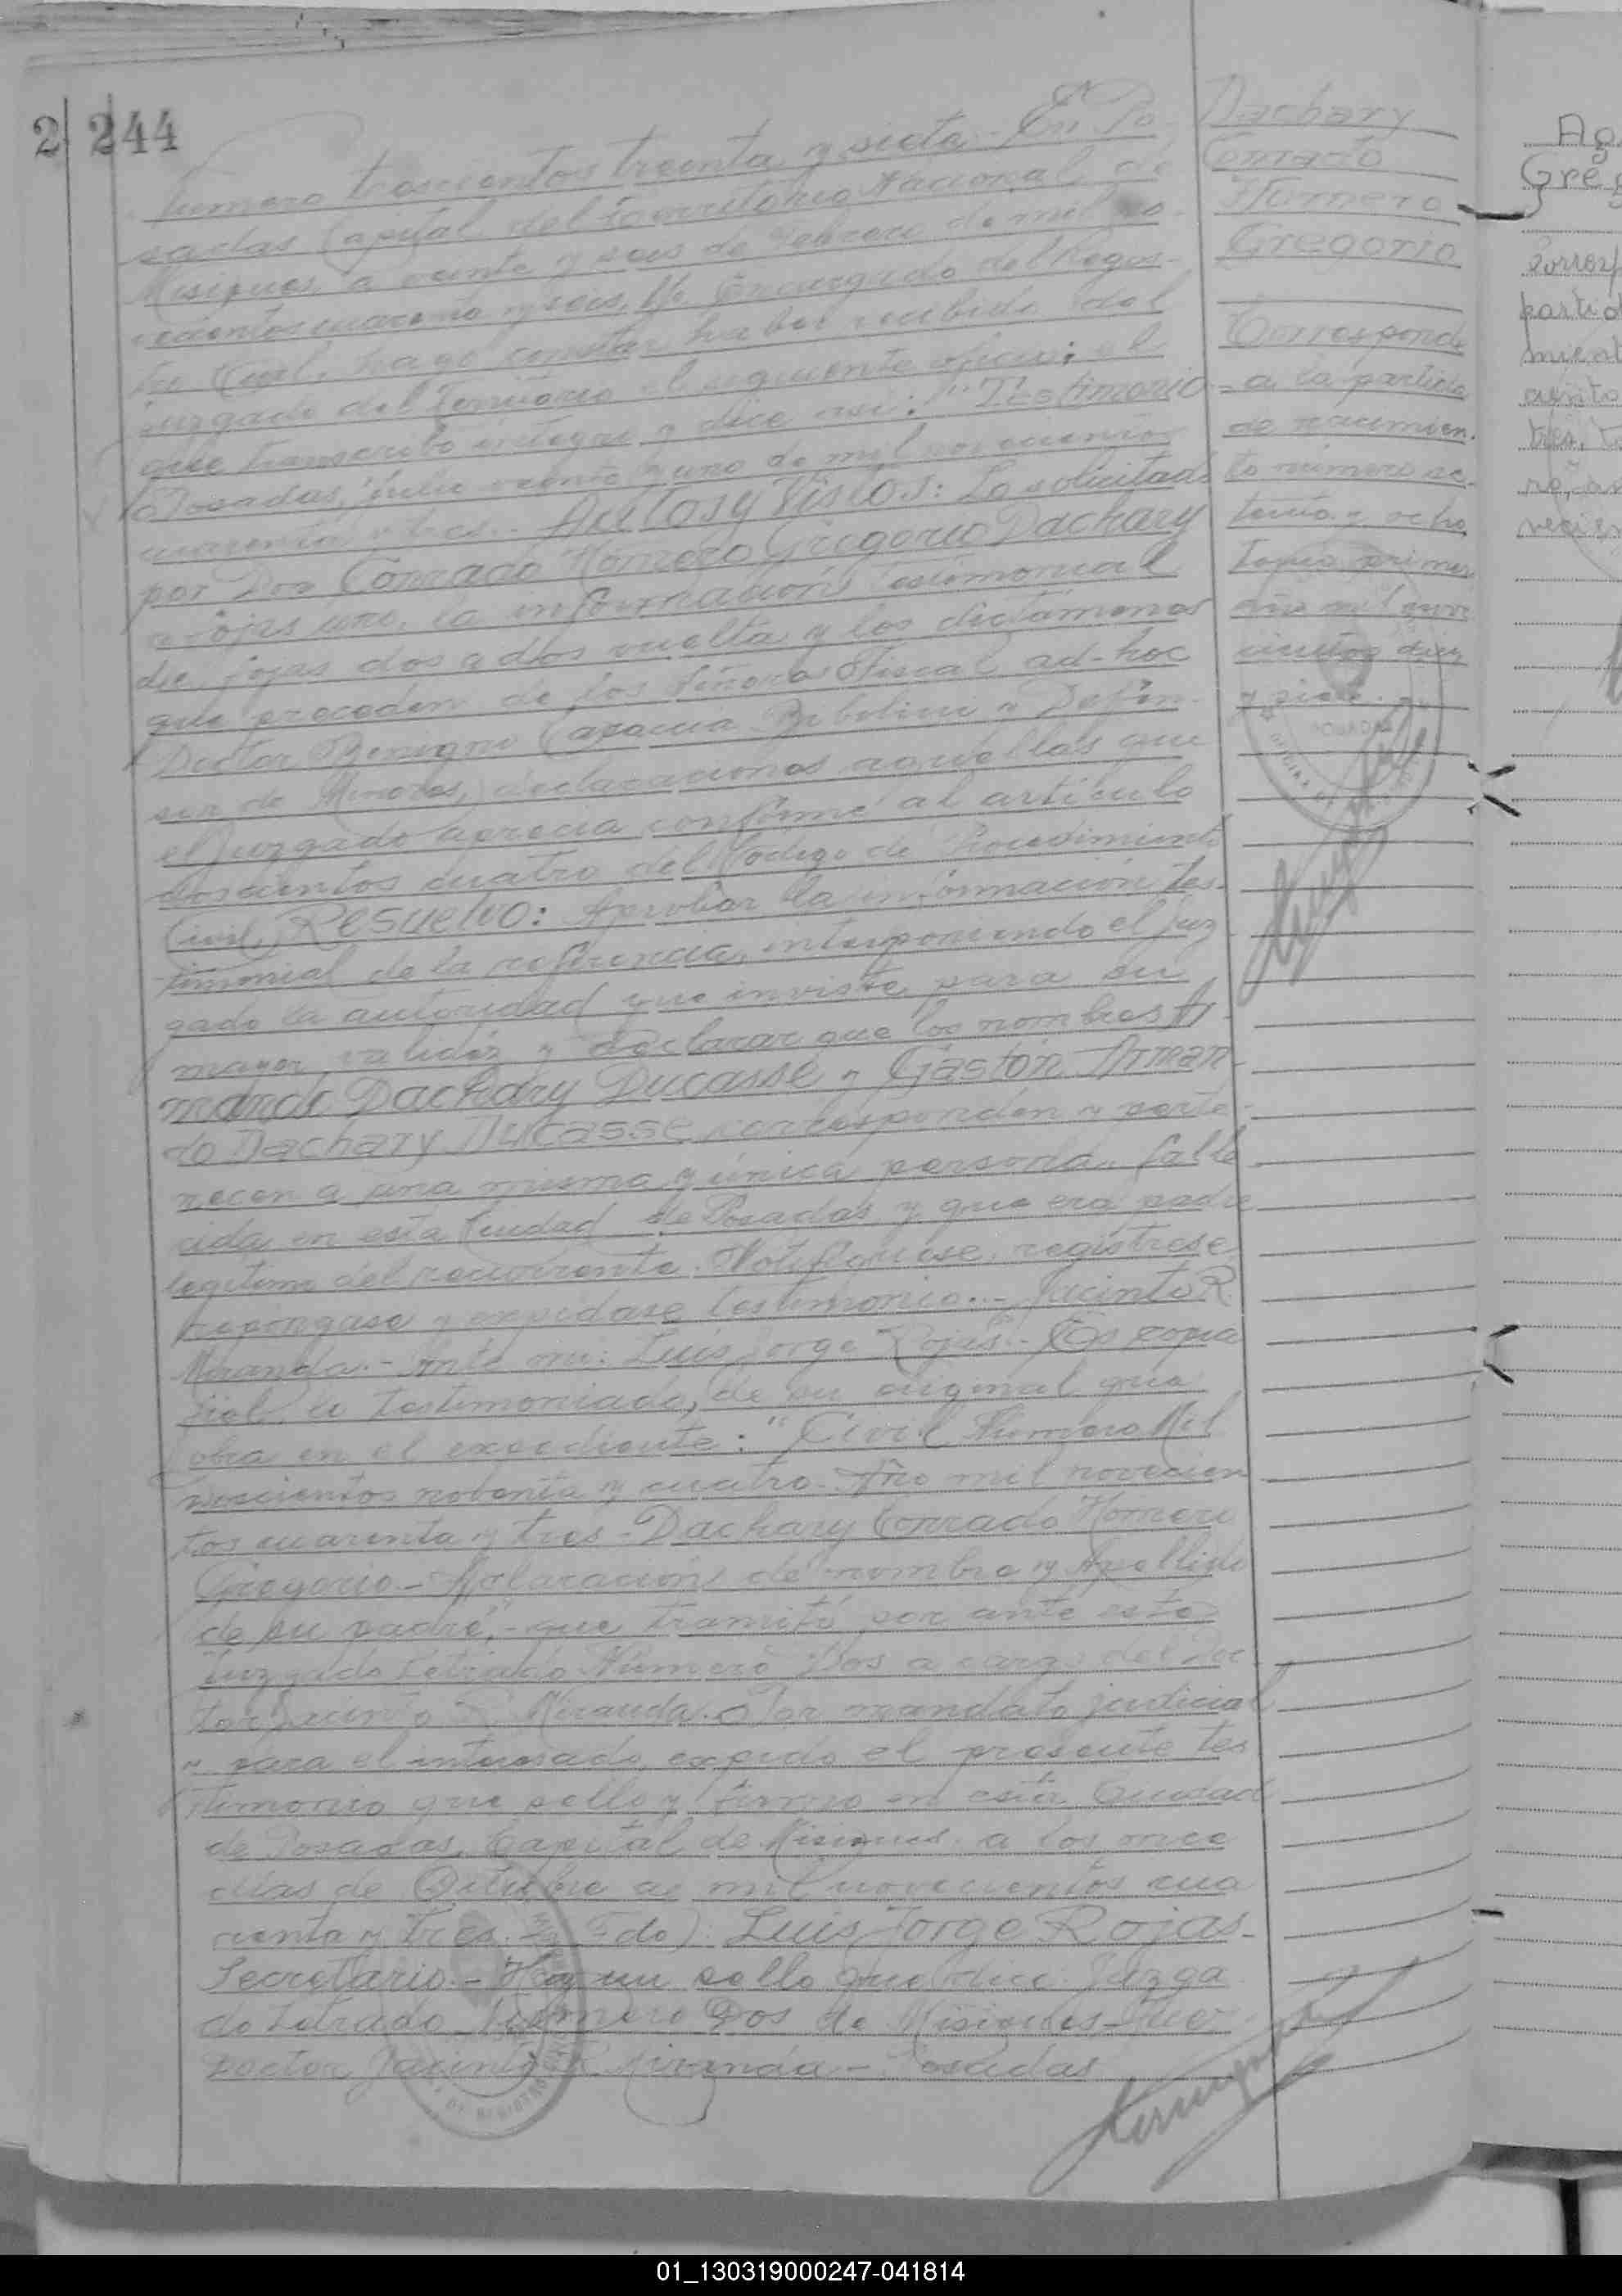 2 244
Número trescientos treinta y siete - En Po
sadas Capital del Territorio Nacional de
Misiones a veinte y seis de Febrero de mil no-
vecientos cuarenta y seis, Yo Encargado del Regis-
tro Civil, hago constar haber recibido del
juzgado del Territorio el siguiente oficio: el
que transcribo integro y dice así: "Testimonio
Posadas, Julio veinte y uno de mil novecientos
cuarenta y tres.- Autos y Vistos: Lo solicitado
por Don Conrado Homero Gregorio Dachary
a fojas uno, la información testimonial
de fojas dos a dos vuelta y los dictámenes
que preceden de los señores Fiscal ad-hoc
Doctor Benigno y Defen-
sor de Menores, declaraciones aquellas que
el Juzgado aprecia conforme al artículo
doscientos cuatro del Código de Procedimiento
Civil, Resuelvo: Aprobar la información tes-
timonial de la referencia, interponiendo el Juz
gado la autoridad que inviste para su
mayor validéz y declarar que los nombres Ar-
mando Dachary Ducasse y Gastón Arman
do Dachary Ducasse corresponden y perte-
necen a una misma y única persona, falle
cida en esta Ciudad de Posadas y que era padre
legítimo del recurrente. Notifiquese, registrese
repongase y expidase testimonio.- Jacinto R.
Miranda.- Ante mi: Luis Jorge Rojas.- Es copia
fiel, lo testimoniado, de su original que
obra en el expediente: "Civil Número Mil
noventa y cuatro - Año mil novecien
tos cuarenta y tres - Dachary Conrado Homero
Gregorio - Aclaración de nombre y Apellido
de su padre", - que tramitó por ante este
Juzgado Letrado Número Dos a cargo del Doc
tor Jacinto R. Miranda. Por mandato judicial
y para el interesado, expido el presente tes
timonio que sello y firmo en esta Ciudad
de Posadas, Capital de Misiones a los once
días de Octubre de mil novecientos cua
renta y tres.- Fdo): Luis Jorge Rojas-
Secretario.- Hay un sello que dice: Juzga
do Letrado Número Dos de Misiones - Juez
Doctor Jacinto R. Miranda - Posadas
Dachary
Conrado
Homero
Gregorio
Corresponde
a la partida
de nacimien-
to número se-
tenta y ocho
Tomo primer
año mil nove
cientos diez
y siete.-
Ag
Greg
Corresp
partid
mient
01_130319000247-041814